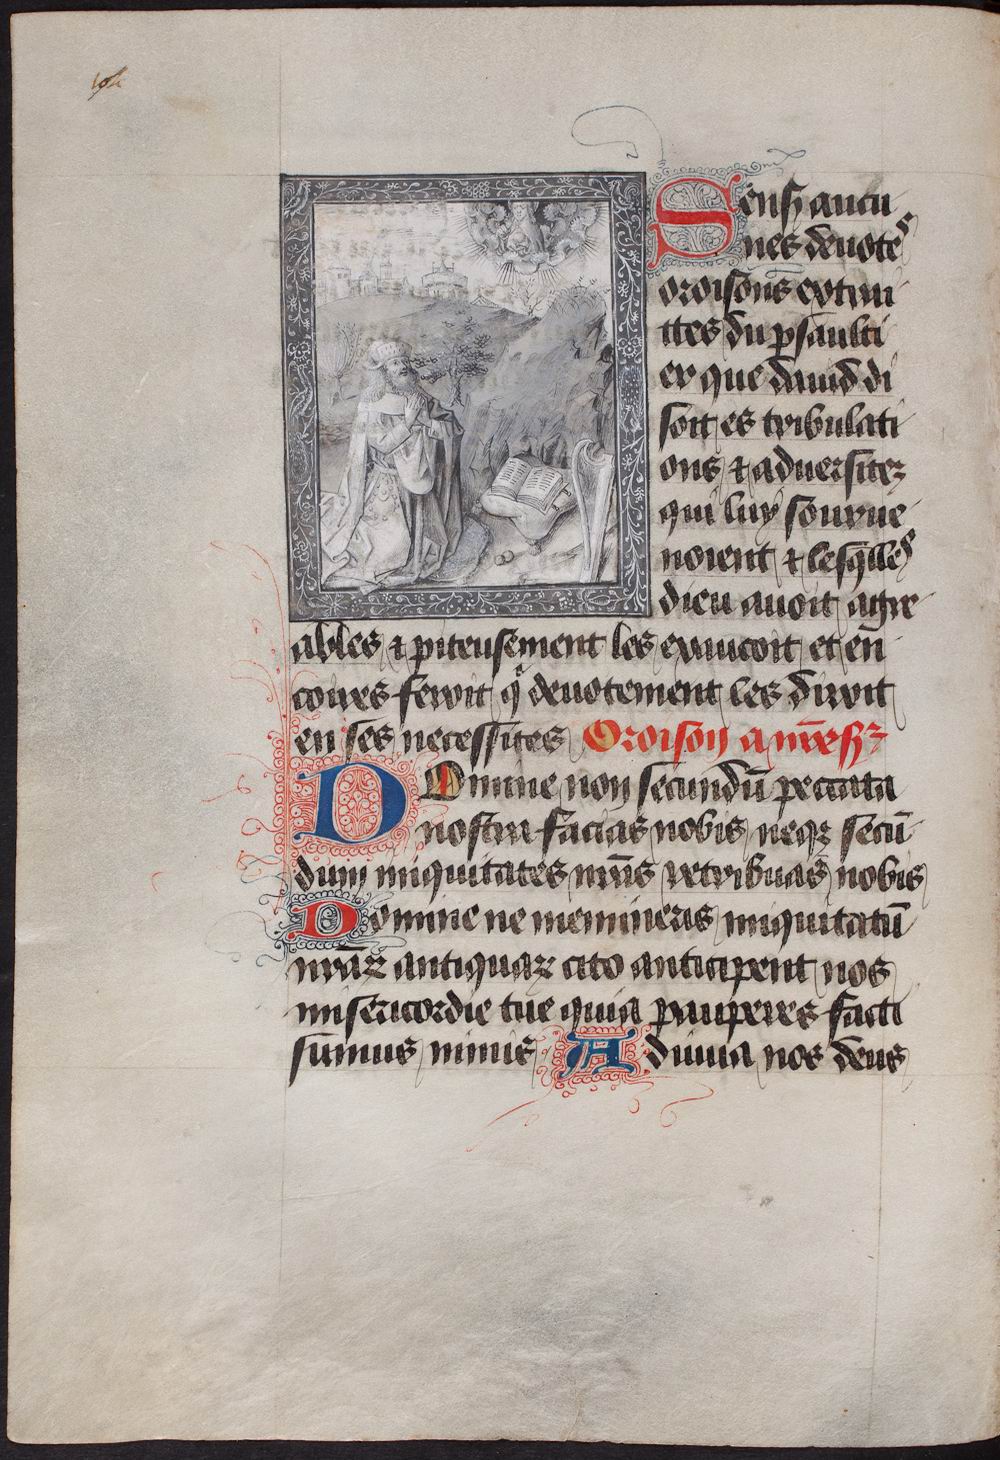 Sensꝯ aucu
nes deuotes
oroisons extrai
ttes du psaulti
er que dauid di
soit es tribulati
ons ⁊ aduersitez
qui luy souruе
noient ⁊ lesq̄lles
dieu auoit agre
ables ⁊ piteusement les exaucoit et en̄
cores feroit q̇ deuotement les diroit
en ses necessites Oroison
Domine non secundū peccata
nostra facias nobis neqꝫ secū
dum iniquitates nr̄as retribuas nobis
Domine ne memineris iniquitatū
nr̄aꝝ antiquaꝝ cito anticipent nos
misericordie tue quia pauperes facti
sumus nimis Adiuua nos deus